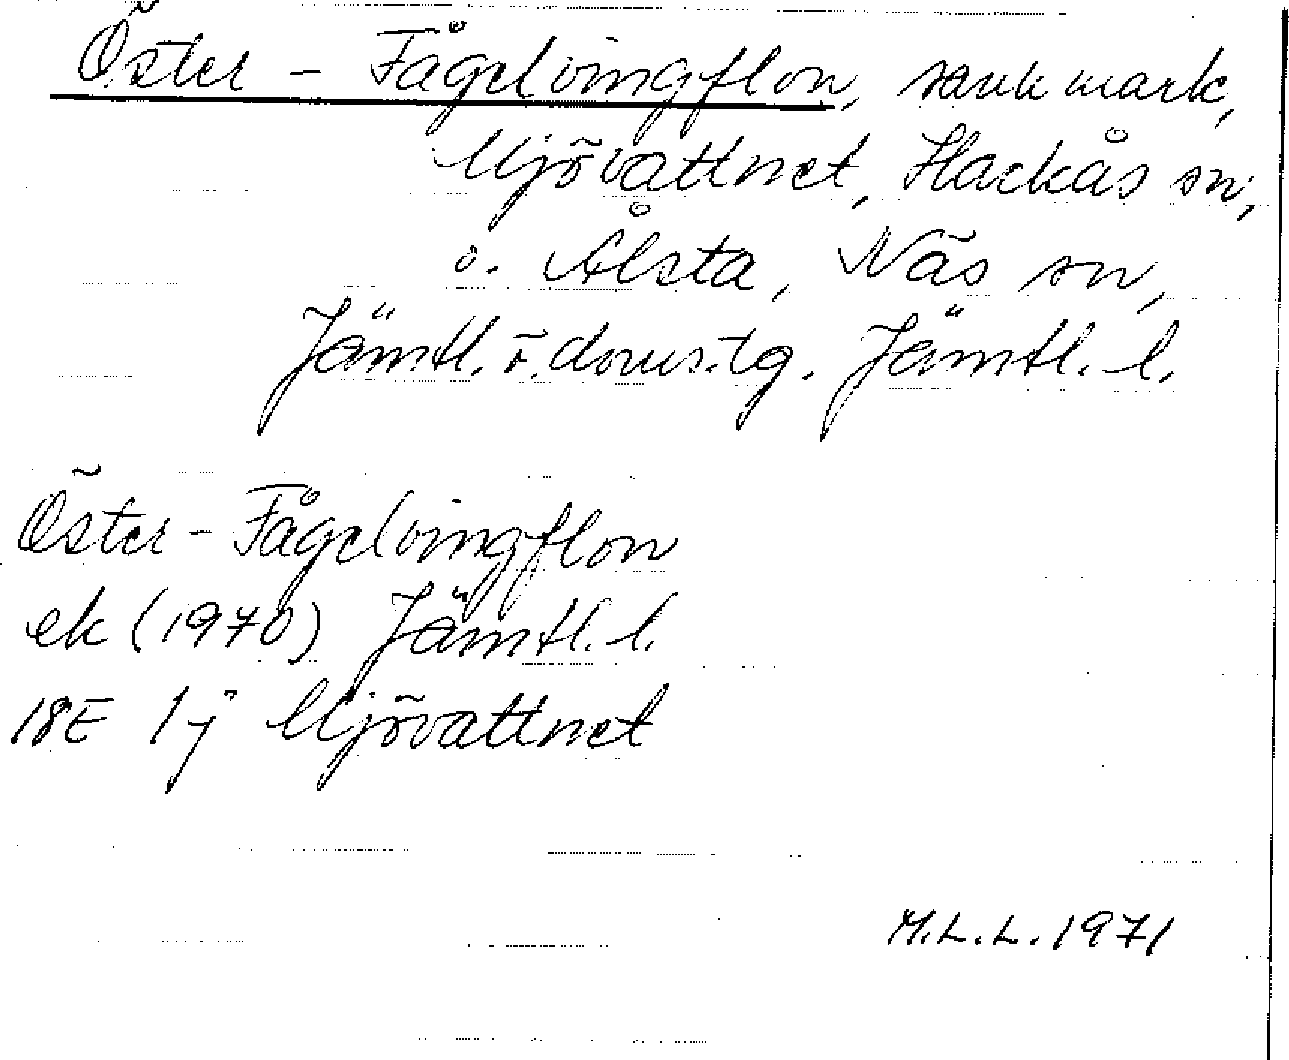 Öster - Fågelvingflon, sank mark,
Mjövattnet, Hackås sn,
o. Ålsta, Näs sn,
Jämtl. ö. doms.tg. Jämtl. l.
Öster - Fågelvingflon
ek (1970) Jämtl. l.
18E 1j Mjövattnet
M.L.L. 1971